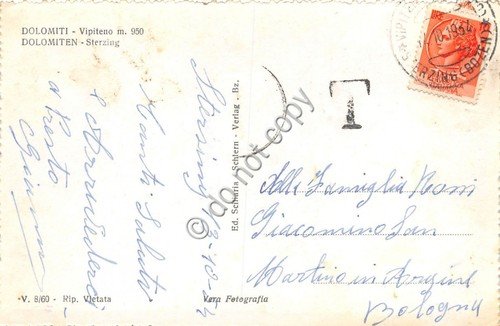 DOLOMITI - Vipiteno m. 950
DOLOMITEN - Sterzing
Sterzing 13-10-54
Tanti Saluti
e Arrivederci
a Presto
Gianni
Ed. Schnria - Schlern - Verlag - Bz.
T
STERZING (BOZEN)
Alla Famiglia Noni
Giacomino San
Martino in Argine
Bologna
V. 8/60 - Rip. Vietata
Vera Fotografia
do not copy